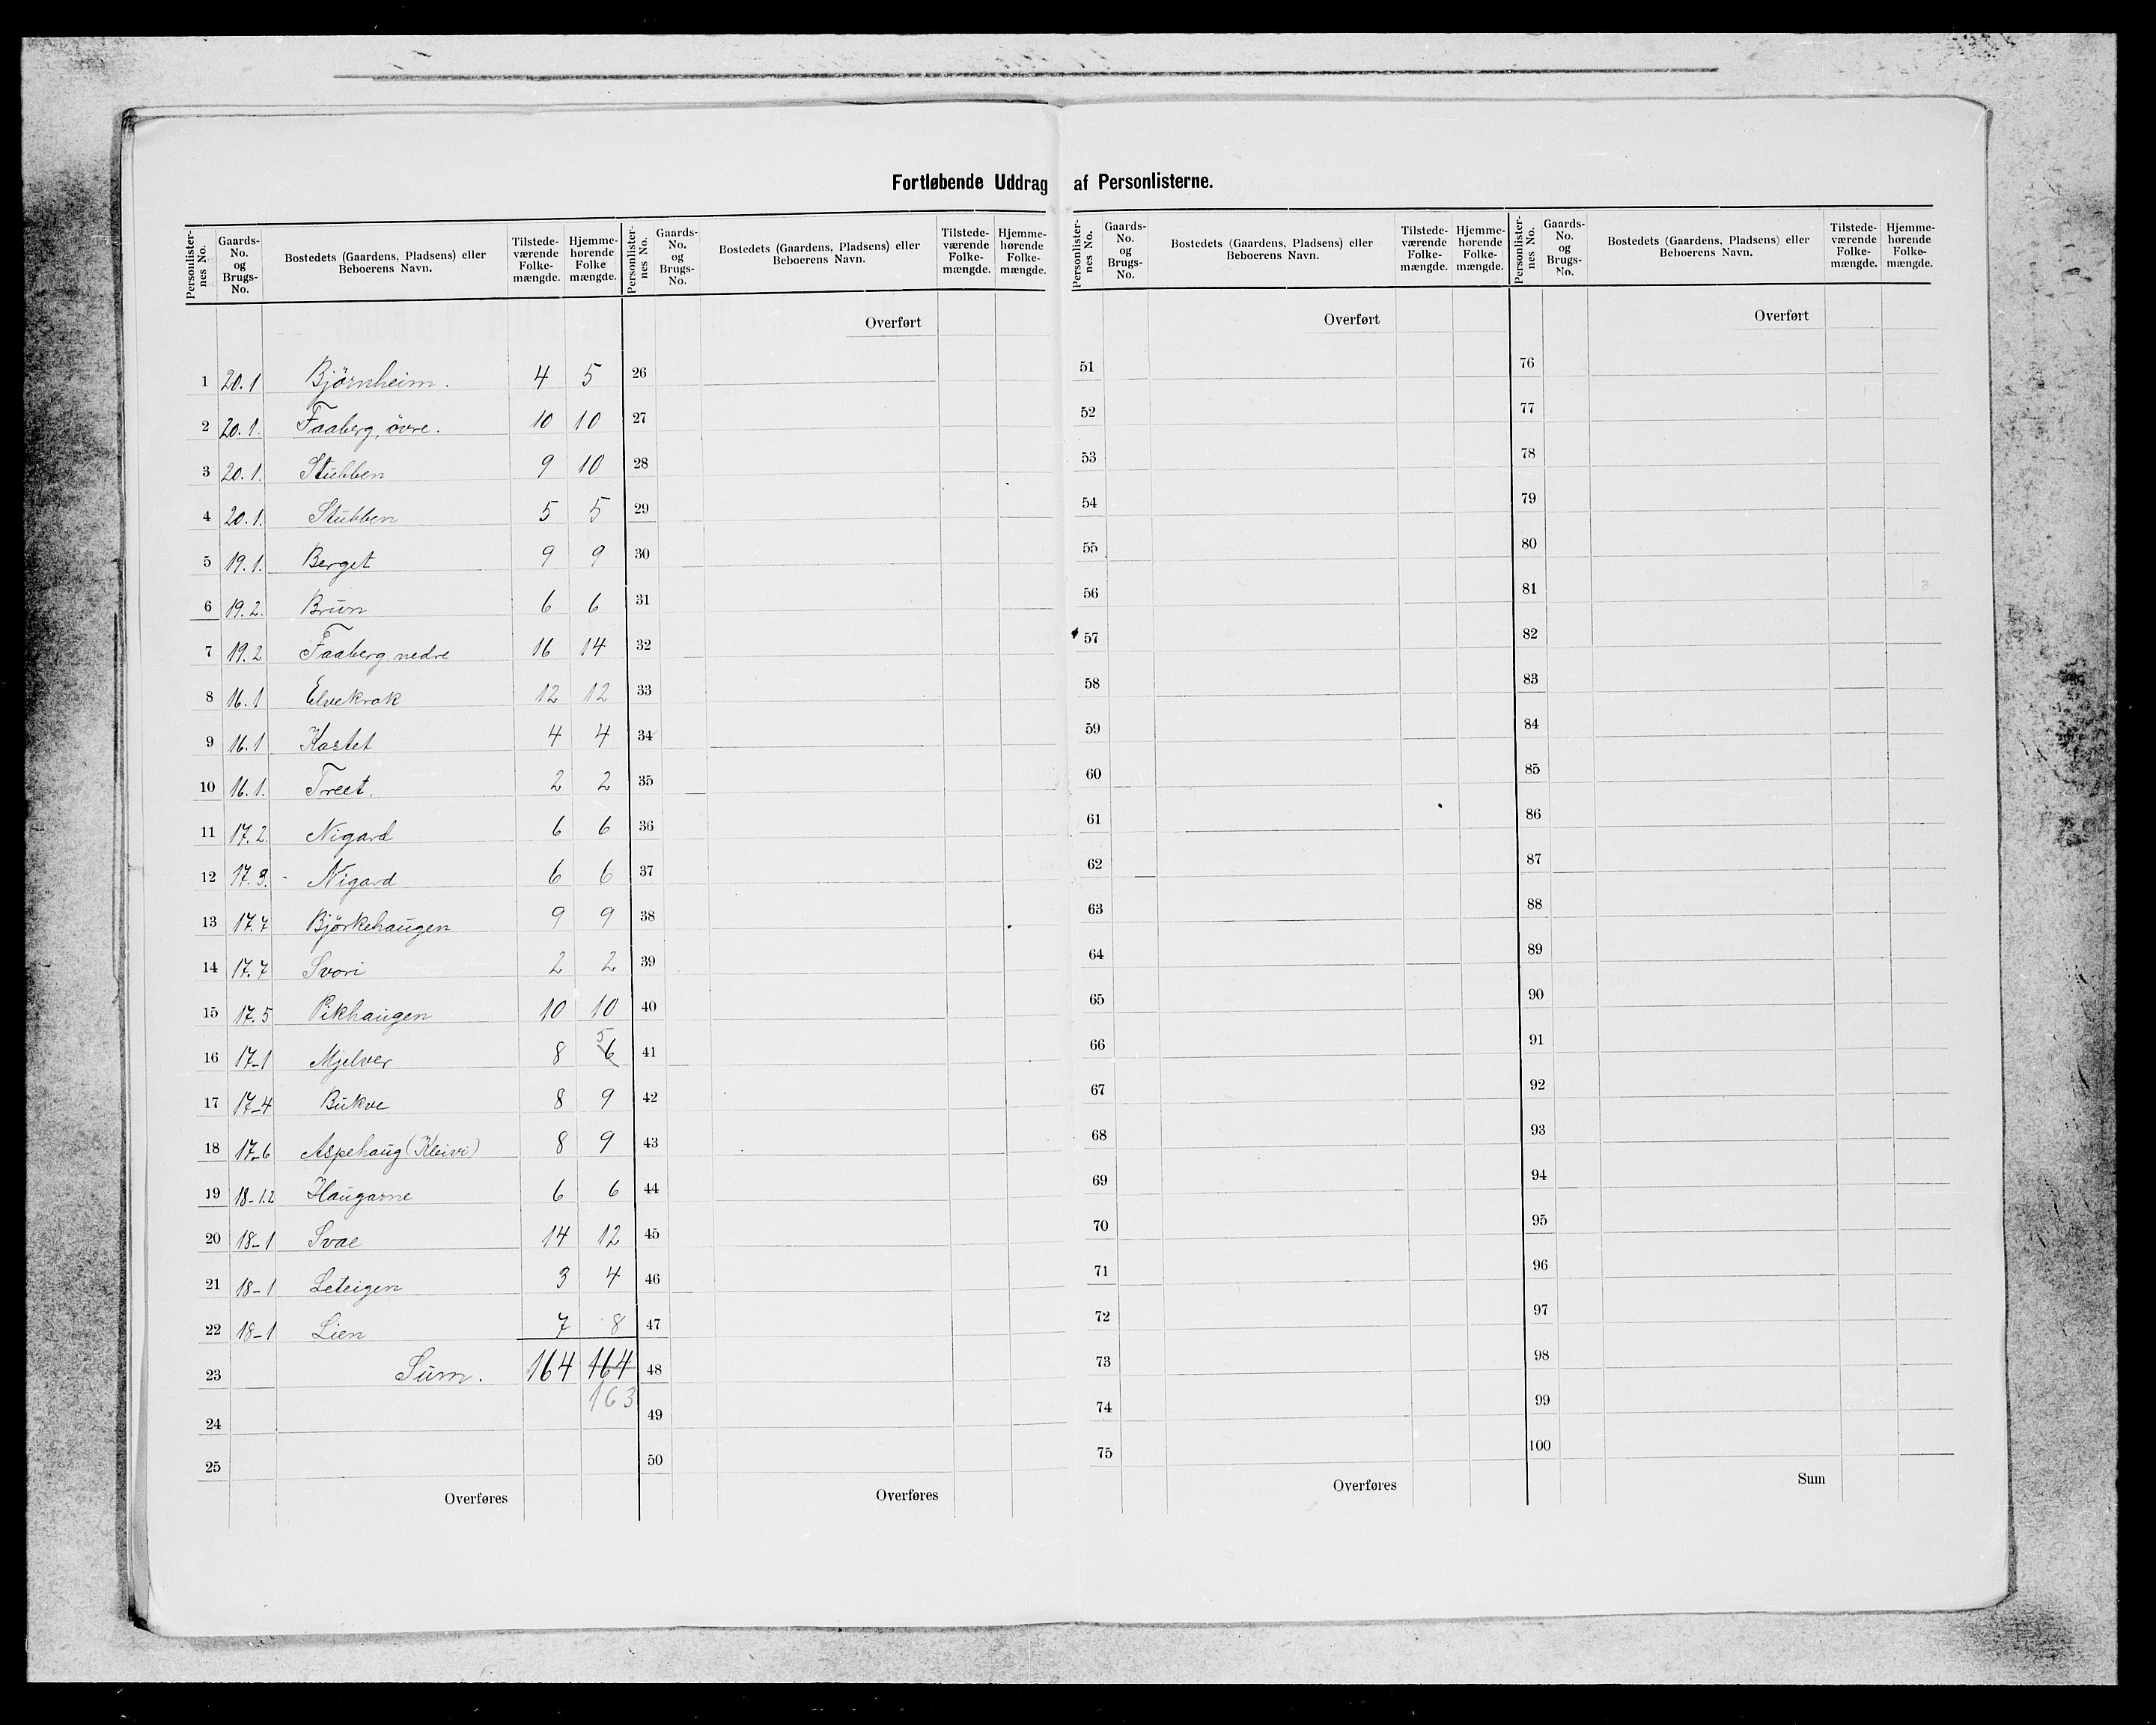 Fortløbende Uddrag af Personlisterne.
Personlister-nes No. Gaards-No. og Brugs-No. Bostedets (Gaardens, Pladsens) eller Beboerens Navn. Tilstede-værende Folke-mængde. Hjemme-hørende Folke mængde.
1 20.1 Bjørnheim. 4 5
2 20.1. Faaberg, övre. 10 10
3 20.1. Stubben 9 10
4 20.1. Stubben 5 5
5 19.1. Berget 9 9
6 19.2. Brun 6 6
7 19.2 Faaberg nedre 16 14
8 16.1 Elvekrok 12 12
9 16.1 Kastet 4 4
10 16.1. Treet. 2 2
11 17.2. Nigard 6 6
12 17.3. - Nigard 6 6
13 17.7 Björkehaugen 9 9
14 17.7 Svori 2 2
15 17.5 Pikhaugen 10 10
16 17-1 Mjelver 8 6 5
17 17-4 Bukve 8 9
18 17-6 Aspehaug (Kleivi) 8 9
19 18-1.2 Haugarne 6 6
20 18-1 Svae 14 12
21 18-1 Leteigen 3 4
22 18-1 Lien 7 8
23 Sum. 164 164
163
24
25
Overføres
Personlister-nes No. Gaards-No. og Brugs-No. Bostedets (Gaardens, Pladsens) eller Beboerens Navn. Tilstede-værende Folke-mængde. Hjemme-hørende Folke-mængde.
Overført
26
27
28
29
30
31
32
33
34
35
36
37
38
39
40
41
42
43
44
45
46
47
48
49
50
Overføres
Personlister-nes No. Gaards-No. og Brugs-No. Bostedets (Gaardens, Pladsens) eller Beboerens Navn. Tilstede-værende Folke-mængde. Hjemme-hørende Folke-mængde.
Overført
51
52
53
54
55
56
57
58
59
60
61
62
63
64
65
66
67
68
69
70
71
72
73
74
75
Overføres
Personlister-nes No. Gaards-No. og Brugs-No. Bostedets (Gaardens, Pladsens) eller Beboerens Navn. Tilstede-værende Folke-mængde. Hjemme-hørende Folke-mængde.
Overført
76
77
78
79
80
81
82
83
84
85
86
87
88
89
90
91
92
93
94
95
96
97
98
99
100
Sum